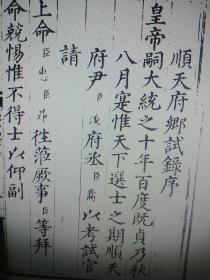 順天府鄉試錄序
皇帝嗣大統之十年百度既貞乃秋
八月寔惟天下選士之期順天
府尹臣 府丞臣 以考試官
請
上命臣忠臣昂往蒞厥事臣等拜
命兢惕惟不得士以仰副